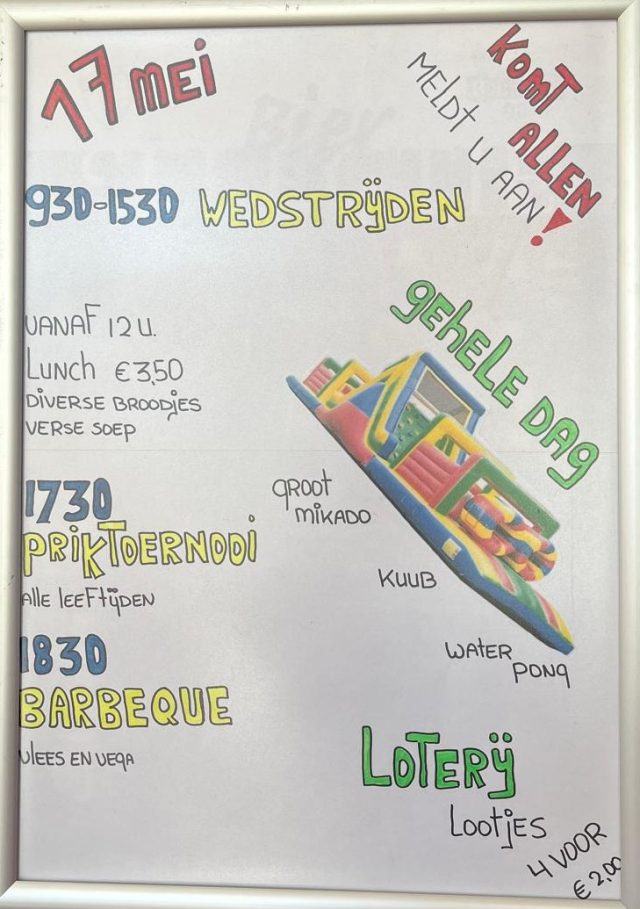 17 MEI
KOMT ALLEN
MELDT U AAN!
930-1530 WEDSTRIJDEN
VANAF 12 U.
LUNCH €3,50
DIVERSE BROODJES
VERSE SOEP
GEHELE DAG
GROOT
MIKADO
KUUB
WATER
PONG
1730
PRIKTOERNOOI
ALLE LEEFTIJDEN
1830
BARBEQUE
VLEES EN VEGA
LOTERIJ
LOOTJES
4 VOOR
€ 2,00